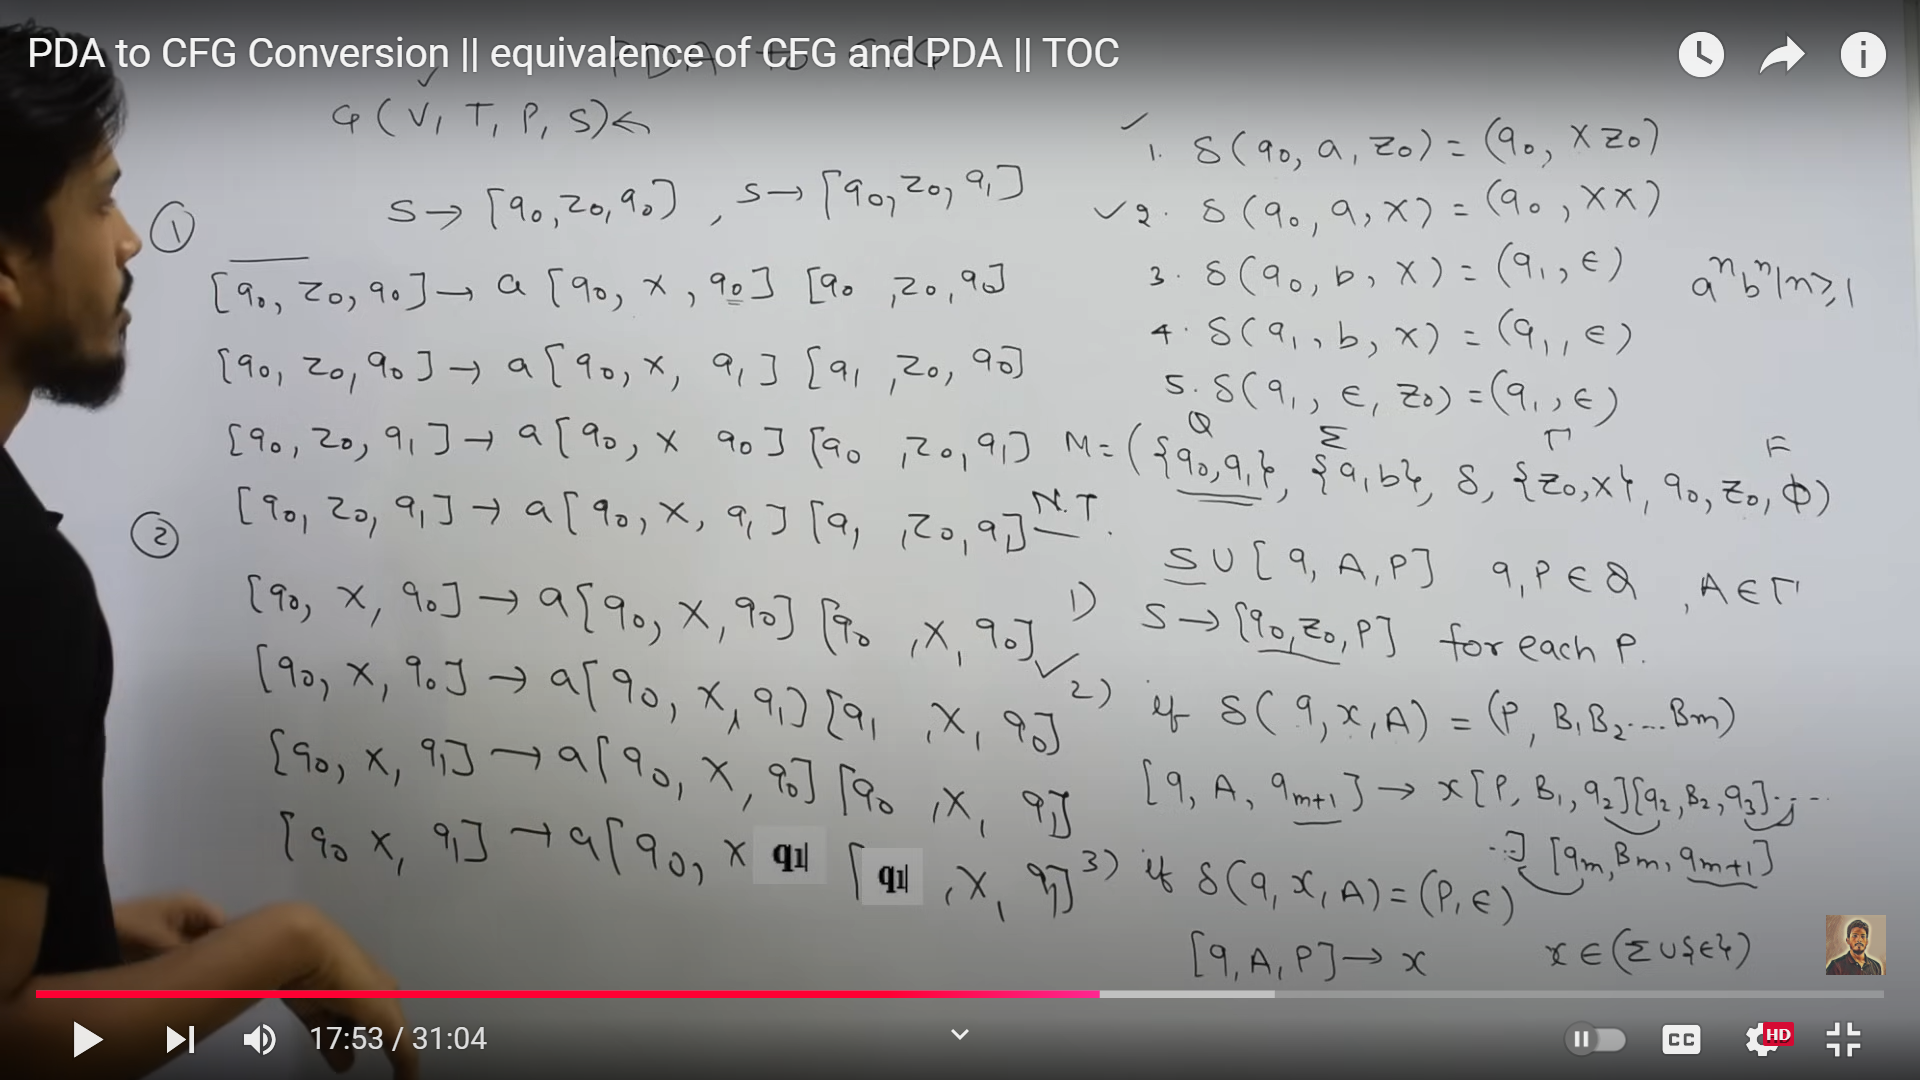 PDA to CFG Conversion || equivalence of CFG and PDA || TOC
G ( V, T, P, S) ←
① S → [q₀, z₀, q₀] , S → [q₀, z₀, q₁]
[q₀, z₀, q₀] → a [q₀, x, q₀] [q₀, z₀, q₀]
[q₀, z₀, q₀] → a [q₀, x, q₁] [q₁, z₀, q₀]
[q₀, z₀, q₁] → a [q₀, x q₀] [q₀, z₀, q₁]
[q₀, z₀, q₁] → a [q₀, x, q₁] [q₁, z₀, q₁] N.T.
②
[q₀, x, q₀] → a [q₀, x, q₀] [q₀, x, q₀]
[q₀, x, q₀] → a [q₀, x, q₁] [q₁, x, q₀]
[q₀, x, q₁] → a [q₀, x, q₀] [q₀, x, q₁]
[q₀ x, q₁] → a [q₀, x q₁ [ q₁ , x, q₁]
✓ 1. δ(q₀, a, z₀) = (q₀, x z₀)
✓ 2. δ(q₀, a, x) = (q₀, xx)
3. δ(q₀, b, x) = (q₁, ε)
aⁿbⁿ|n≥1
4. δ(q₁, b, x) = (q₁, ε)
5. δ(q₁, ε, z₀) = (q₁, ε)
Q Σ Γ F
M = ({q₀, q₁}, {a, b}, δ, {z₀, x}, q₀, z₀, Φ)
S U [q, A, P] q, P ∈ Q , A ∈ Γ
1) S → [q₀, z₀, P] for each P.
✓ 2) if δ(q, x, A) = (P, B₁B₂....Bm)
[q, A, qm+1] → x [P, B₁, q₂][q₂, B₂, q₃]....
..] [qm, Bm, qm+1]
3) if δ(q, x, A) = (P, ε)
[q, A, P] → x x ∈ (Σ U {ε})
17:53 / 31:04
CC
HD